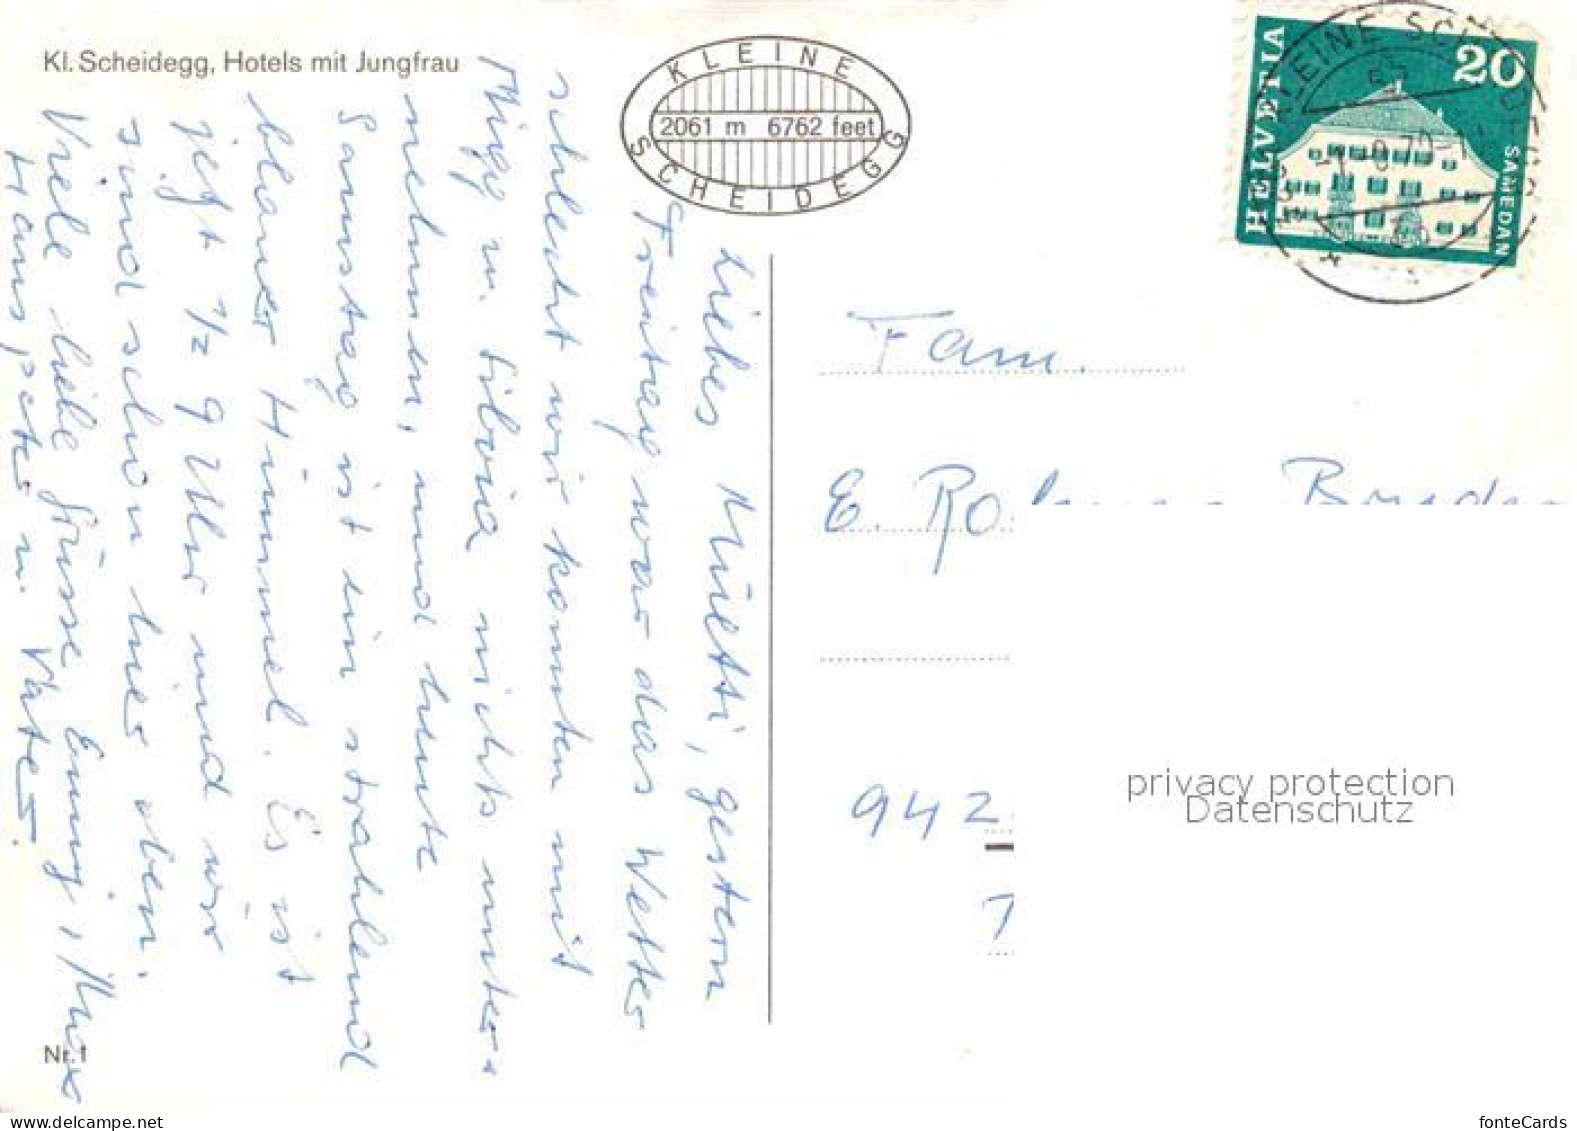 Kl. Scheidegg, Hotels mit Jungfrau
KLEINE
2061 m 6762 feet
SCHEIDEGG
HELVETIA
20
SAMEDAN
KLEINE SCHEIDEGG
Liebes Müetti, gestern
Freitag war das Wetter
schlecht wir konnten mit
u. Silvia nichts unter-
nehmen, und heute
Samstag ist ein strahlend
blauer Himmel. Es ist
jezt 1/2 9 Uhr und wir
sind schon hier oben.
Viele liebe Grüsse Emmy,
Hanspeter u. Vater.
Fam.
E.
942
7
Nr. 1
privacy protection
Datenschutz
fonteCards